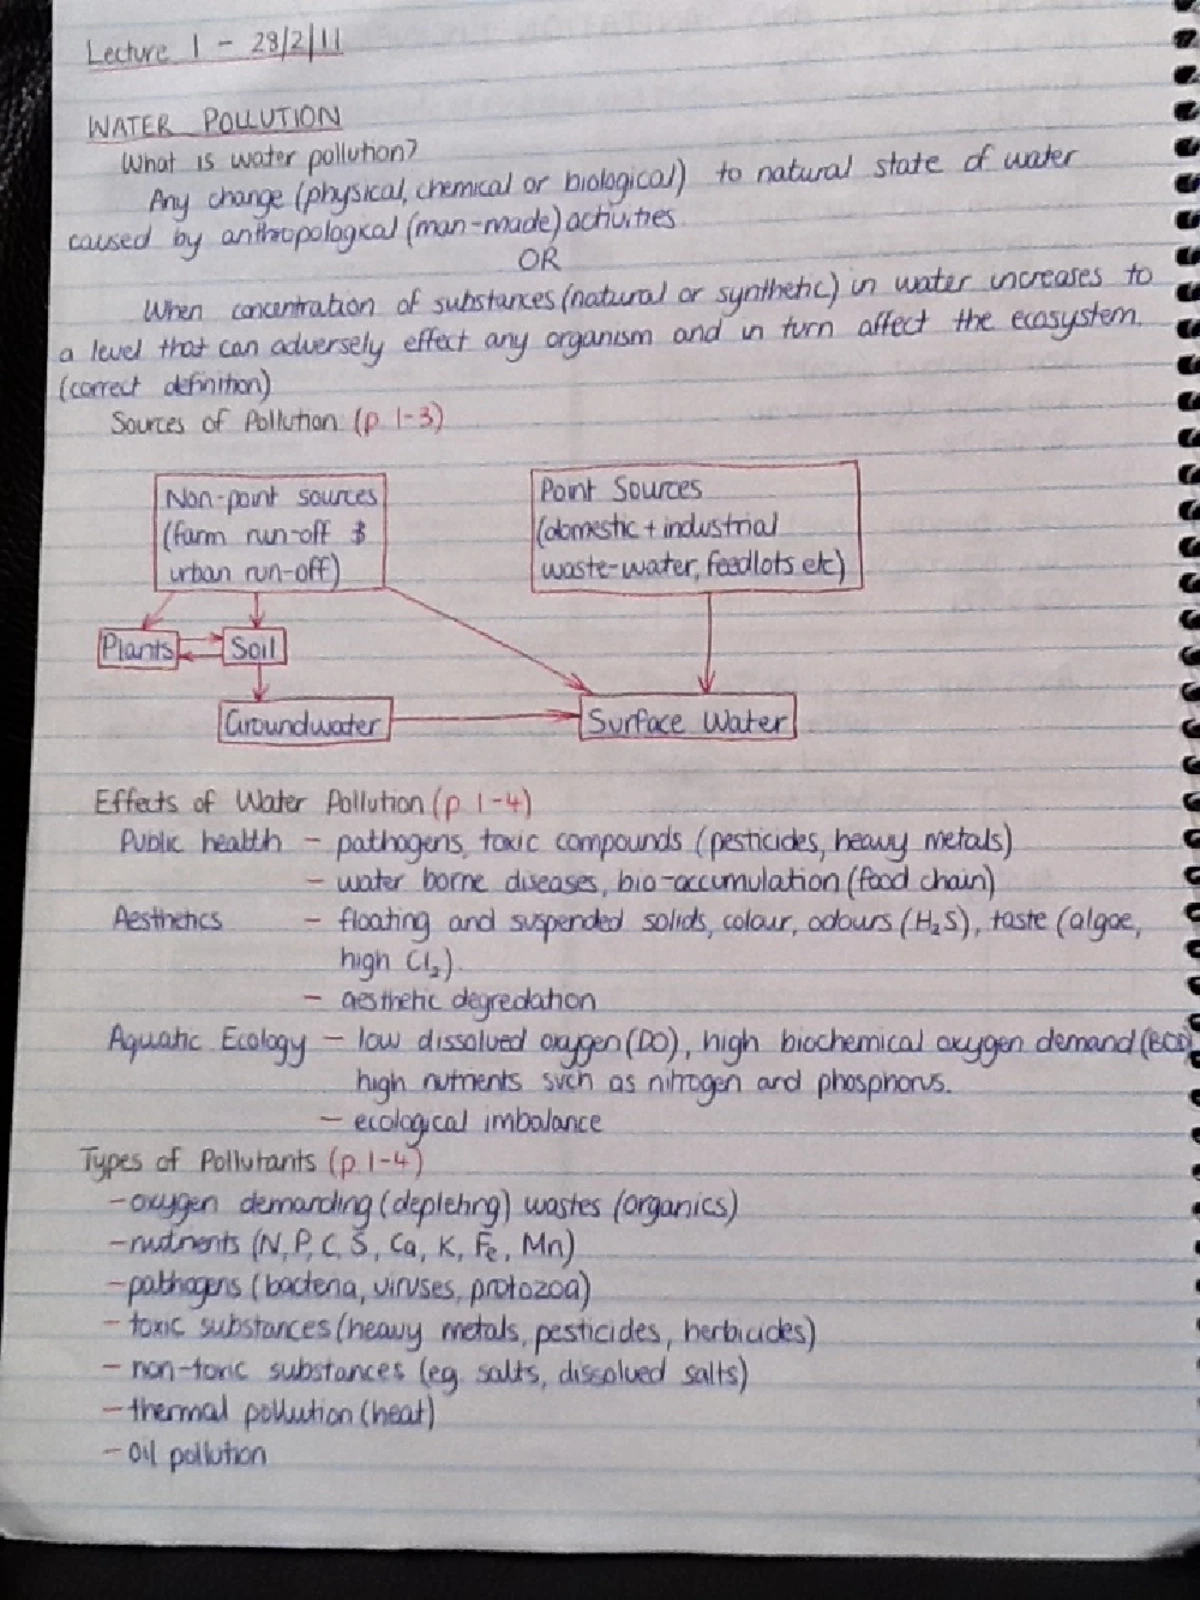 Lecture 1 - 28/2/11
WATER POLLUTION
What is water pollution?
Any change (physical, chemical or biological) to natural state of water
caused by anthropological (man-made) activities
OR
When concentration of substances (natural or synthetic) in water increases to
a level that can adversely effect any organism and in turn affect the ecosystem.
(correct definition)
Sources of Pollution (p 1-3)
Non-point sources
(farm run-off &
urban run-off)
Point Sources
(domestic + industrial
waste-water, feedlots etc)
Plants
Soil
Groundwater
Surface Water
Effects of Water Pollution (p 1-4)
Public health - pathogens, toxic compounds (pesticides, heavy metals)
- water borne diseases, bio-accumulation (food chain)
Aesthetics - floating and suspended solids, colour, odours (H₂S), taste (algae,
high Cl₂).
- aesthetic degredation
Aquatic Ecology - low dissolved oxygen (DO), high biochemical oxygen demand (BOD)
high nutrients such as nitrogen and phosphorus.
- ecological imbalance
Types of Pollutants (p 1-4)
- oxygen demanding (depleting) wastes (organics)
- nutrients (N, P, C, S, Ca, K, Fe, Mn)
- pathogens (bacteria, viruses, protozoa)
- toxic substances (heavy metals, pesticides, herbicides)
- non-toxic substances (eg. salts, dissolved salts)
- thermal pollution (heat)
- oil pollution